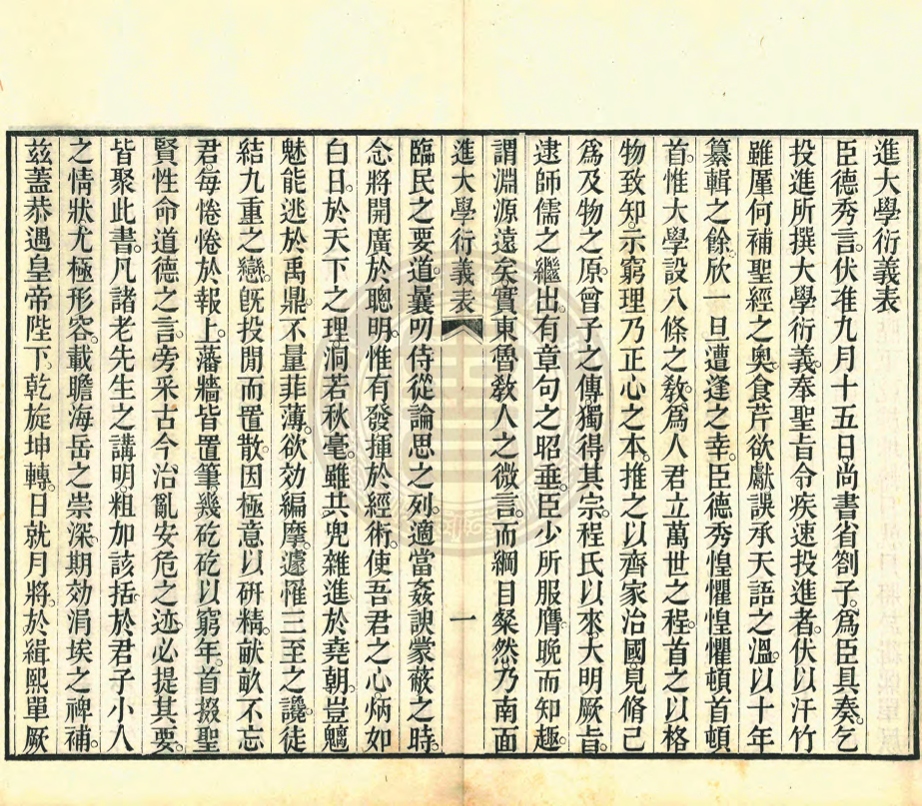 進大學衍義表
臣德秀言。伏准九月十五日尚書省劄子。爲臣具奏。乞
投進所撰大學衍義。奉聖旨令疾速投進者。伏以汗竹
雖厪何補聖經之奧。食芹欲獻誤承天語之溫。以十年
纂輯之餘。欣一旦遭逢之幸。臣德秀惶懼惶懼頓首頓
首。惟大學設八條之敎。爲人君立萬世之程。首之以格
物致知。示窮理乃正心之本。推之以齊家治國。見脩己
爲及物之原。曾子之傳獨得其宗。程氏以來。大明厥旨。
逮師儒之繼出。有章句之昭垂。臣少所服膺。晚而知趣。
謂淵源遠矣實東魯敎人之微言。而綱目粲然乃南面
進大學衍義表 一
臨民之要道。曩叨侍從論思之列。適當姦諛蒙蔽之時。
念將開廣於聰明。惟有發揮於經術。使吾君之心。炳如
白日。於天下之理洞若秋毫。雖共兜雜進於堯朝。豈魑
魅能逃於禹鼎。不量菲薄。欲効編摩。遽罹三至之讒。徒
結九重之戀。旣投閒而置散。因極意以研精。畎畝不忘
君。每惓惓於報上。藩牆皆置筆。幾矻矻以窮年。首掇聖
賢性命道德之言。旁采古今治亂安危之迹。必提其要。
皆聚此書。凡諸老先生之講明。粗加該括。於君子小人
之情狀尤極形容。載瞻海岳之崇深。期効涓埃之裨補。
兹蓋恭遇皇帝陛下。乾旋坤轉。日就月將。於緝熙單厥